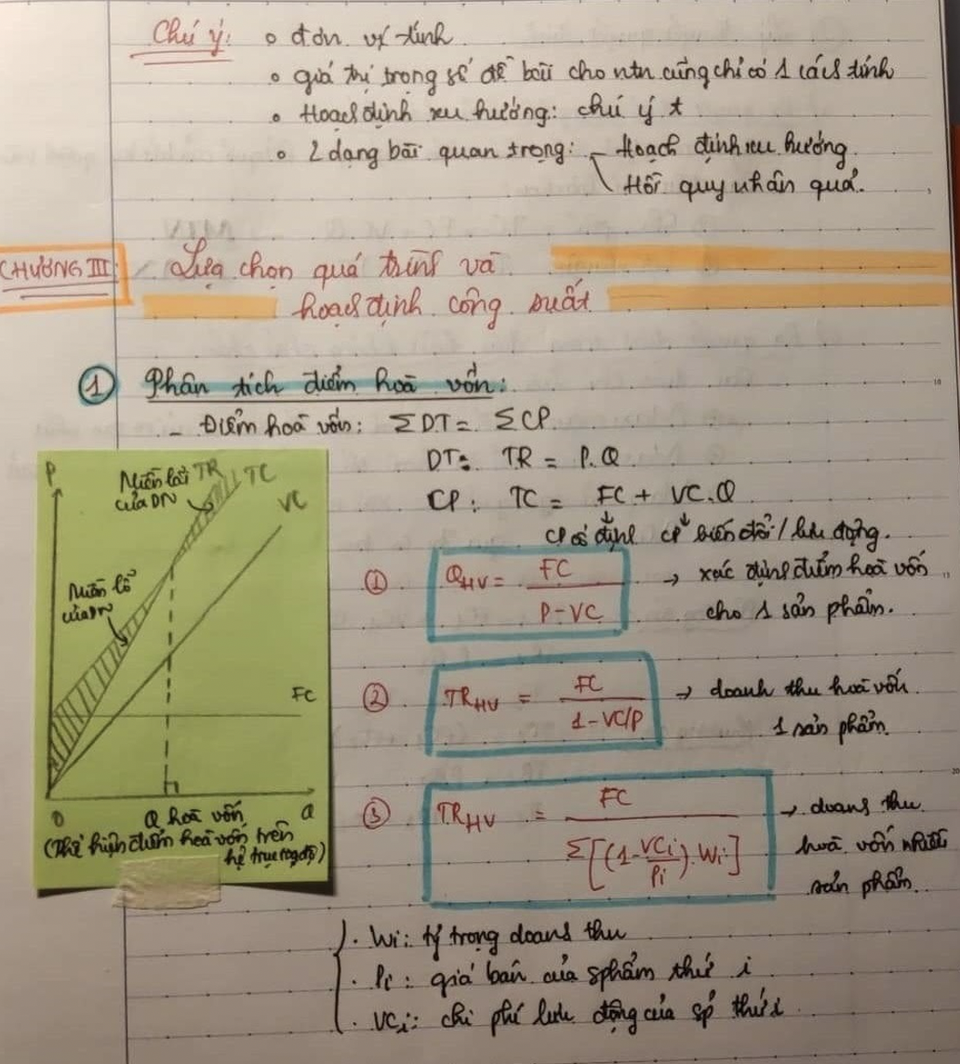 Chú ý: o đơn vị tính
o giá trị trọng số đề bài cho ntn cũng chỉ có 1 cách tính
o Hoạch định xu hướng: chú ý t
o 2 dạng bài quan trọng: - Hoạch định xu hướng.
Hồi quy nhân quả.
CHƯƠNG III: Lựa chọn quá trình và
hoạch định công suất
① Phân tích điểm hoà vốn:
- Điểm hoà vốn: ΣDT = ΣCP.
DT: TR = P.Q
CP: TC = FC + VC.Q
CP cố định CP biến đổi / lưu động.
① Q_HV = FC / (P - VC) → xác định điểm hoà vốn
cho 1 sản phẩm.
② TR_HV = FC / (1 - VC/P) → doanh thu hoà vốn
1 sản phẩm.
③ TR_HV = FC / Σ[(1 - VCi/Pi).Wi] → doanh thu
hoà vốn nhiều
sản phẩm.
P
Miền lãi của DN
TR
TC
VC
Miền lỗ của DN
FC
0
Q hoà vốn
Q
(Thể hiện điểm hoà vốn trên
hệ trục tọa độ)
· Wi: tỷ trọng doanh thu
· Pi: giá bán của sphẩm thứ i
· VCi: chi phí lưu động của sp thứ i